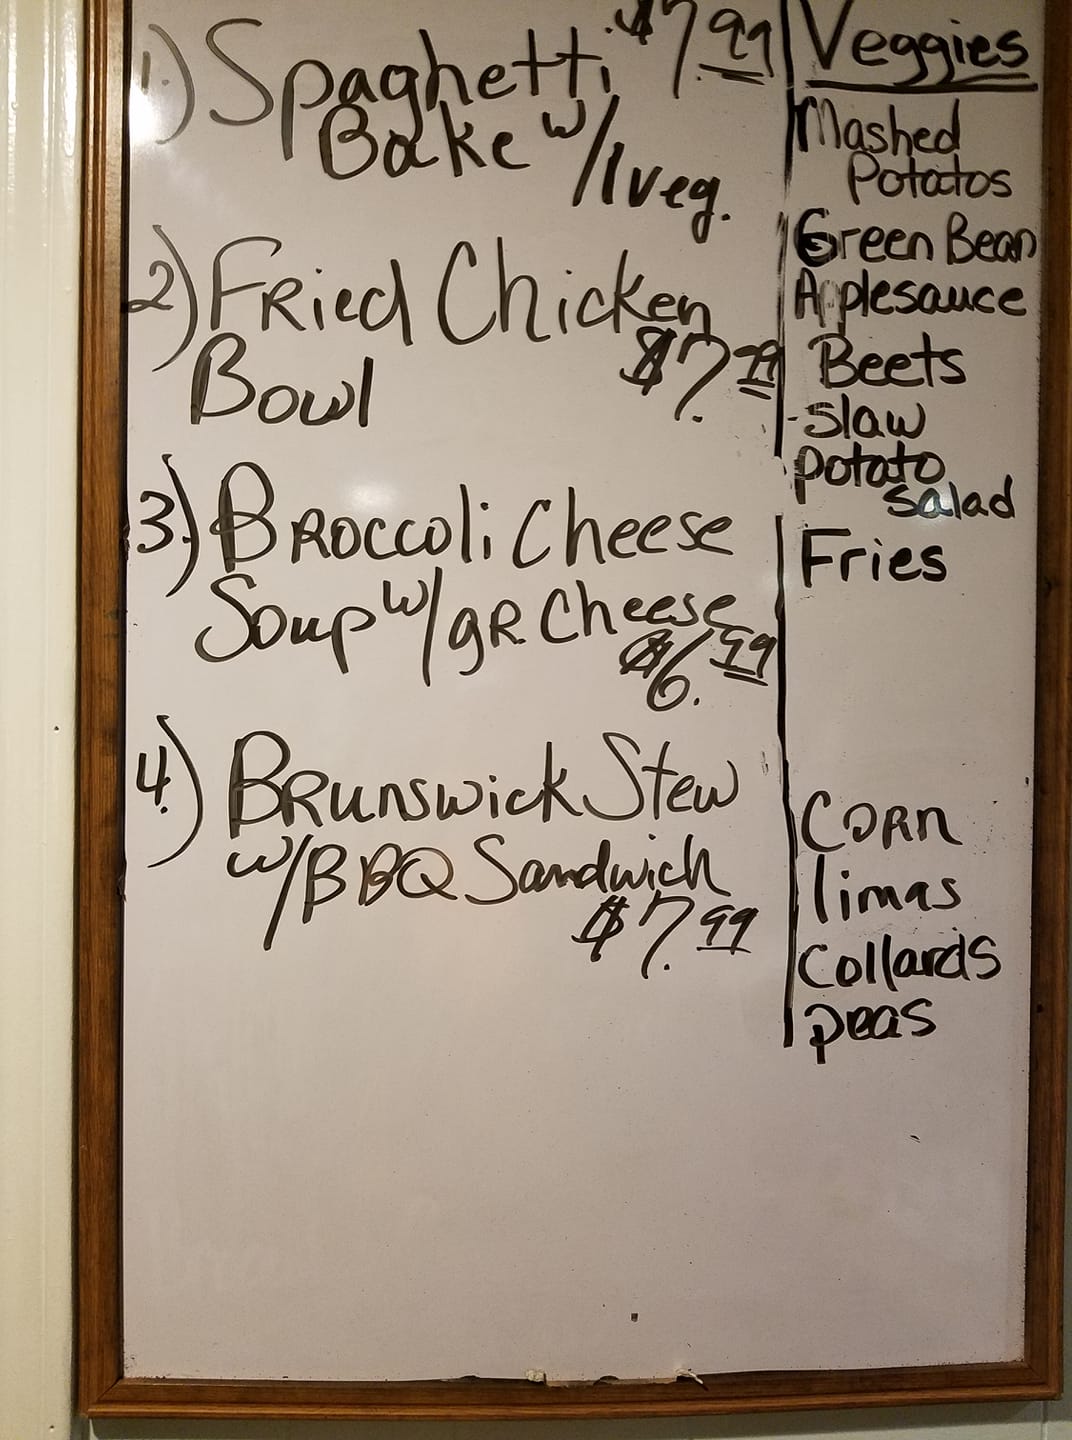 1.) Spaghetti $7.99
Bake w/1 veg.
2) Fried Chicken
Bowl $7.99
3.) Broccoli Cheese
Soup w/gr. Cheese
$6.99
4.) Brunswick Stew
w/BBQ Sandwich
$7.99
Veggies
Mashed
Potatos
Green Bean
Applesauce
Beets
slaw
potato
salad
Fries
Corn
limas
Collards
peas